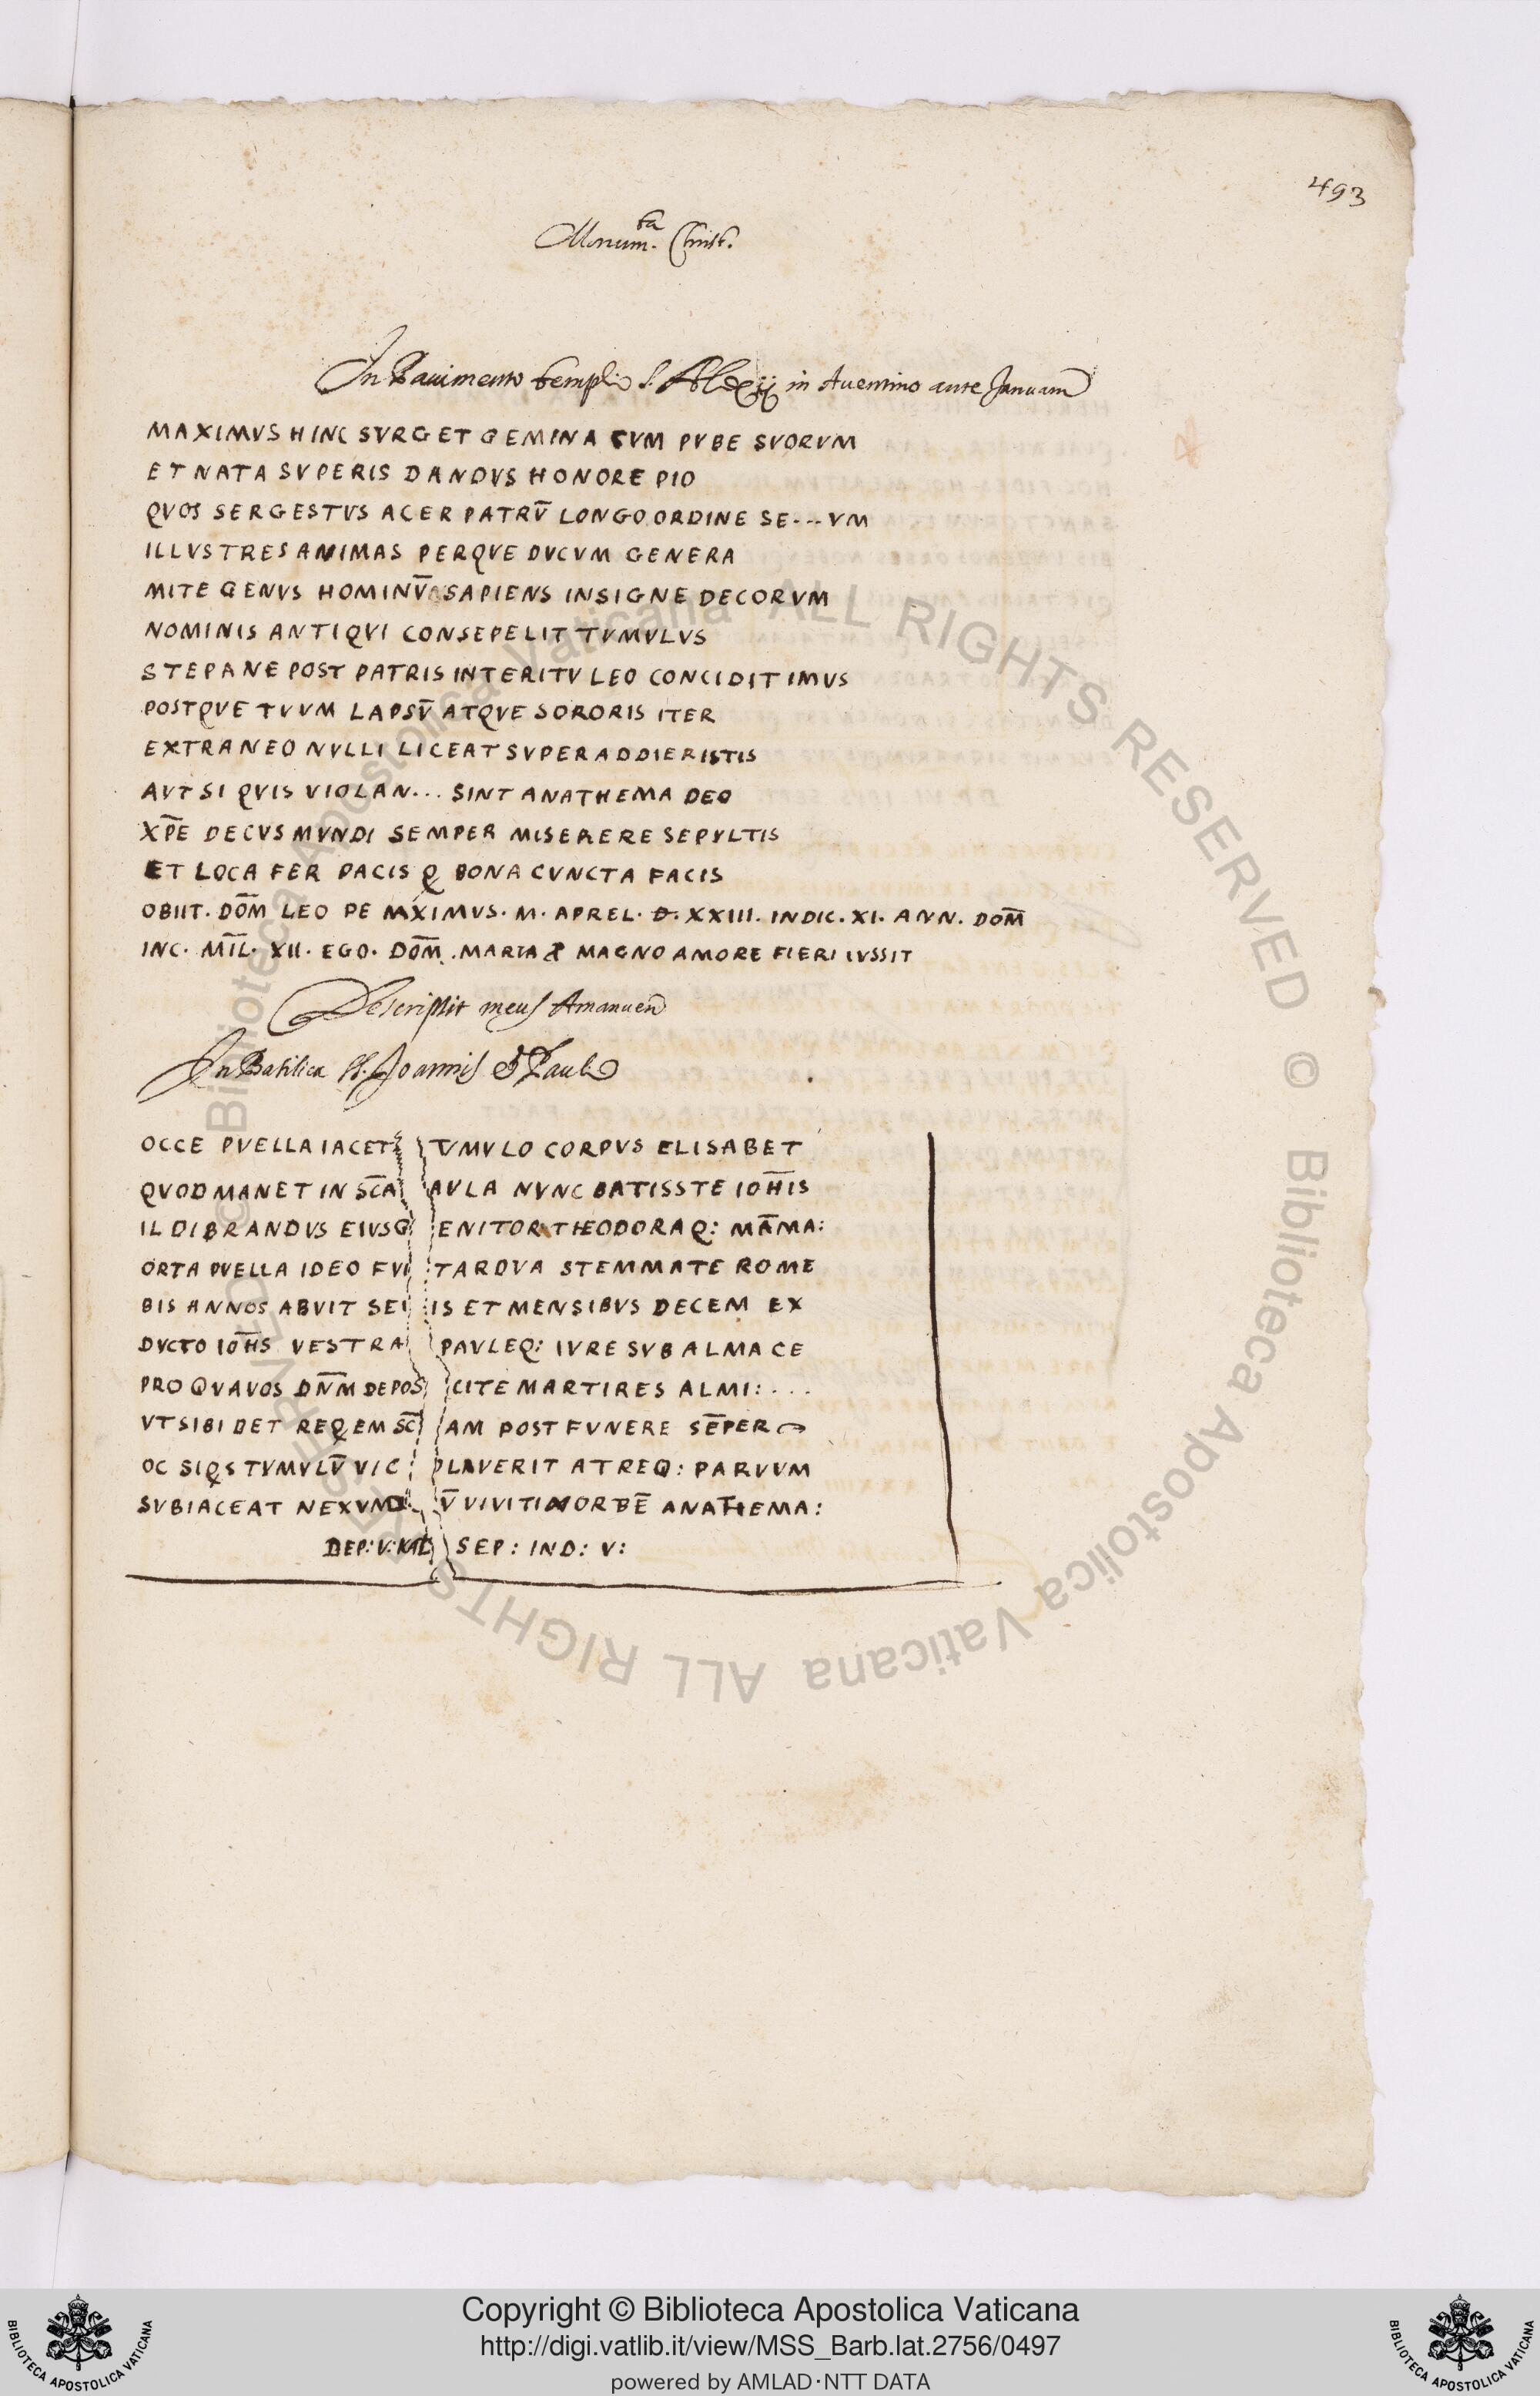 493
Monum.ta Christ.
In Pauimento templi S. Alexij in Auentino ante Januam
MAXIMVS HINC SVRGET GEMINA CVM PVBE SVORVM
ET NATA SVPERIS DANDVS HONORE PIO
QVOS SERGESTVS ACER PATRV̄ LONGO ORDINE SE...VM
ILLVSTRES ANIMAS PERQVE DVCVM GENERA
MITE GENVS HOMINV̄ SAPIENS INSIGNE DECORVM
NOMINIS ANTIQVI CONSEPELIT TVMVLVS
STEPANE POST PATRIS INTERITV LEO CONCIDIT IMVS
POSTQVE TVVM LAPSV̄ ATQVE SORORIS ITER
EXTRANEO NVLLI LICEAT SVPERADDIER ISTIS
AVT SI QVIS VIOLAN... SINT ANATHEMA DEO
XP̄E DECVS MVNDI SEMPER MISERERE SEPVLTIS
ET LOCA FER PACIS Q BONA CVNCTA FACIS
OBIIT. DOM̄ LEO PE MAXIMVS. M. APREL. D. XXIII. INDIC. XI. ANN. DOM̄
INC. MIL̄. XII. EGO. DOM̄. MARIA P MAGNO AMORE FIERI IVSSIT
Descripsit meus Amanuen̄
In Basilica SS. Joannis & Pauli
OCCE PVELLA IACET TVMVLO CORPVS ELISABET
QVOD MANET IN SC̄A AVLA NVNC BATISSTE IOH̄IS
ILDIBRANDVS EIVS G ENITOR THEODORAQ: MĀMA:
ORTA PVELLA IDEO FVI TARDVA STEMMATE ROME
BIS ANNOS ABVIT SEI IS ET MENSIBVS DECEM EX
DVCTO IOH̄S VESTRA PAVLEQ: IVRE SVB ALMA CE
PRO QVA VOS DN̄M DEPOS CITE MARTIRES ALMI:...
VT SIBI DET REQEM SC̄ AM POST FVNERE SĒPER
OC SIQS TVMVLV̄ VIC PLAVERIT ATREQ: PARVVM
SVBIACEAT NEXVM D V̄ VIVIT IN ORBĒ ANATHEMA:
DEP: V: KAL SEP: IND: V:
© Biblioteca Apostolica Vaticana ALL RIGHTS RESERVED © Biblioteca Apostolica Vaticana ALL RIGHTS RESERVED
Copyright © Biblioteca Apostolica Vaticana
http://digi.vatlib.it/view/MSS_Barb.lat.2756/0497
powered by AMLAD·NTT DATA
BIBLIOTECA APOSTOLICA VATICANA
BIBLIOTECA APOSTOLICA VATICANA